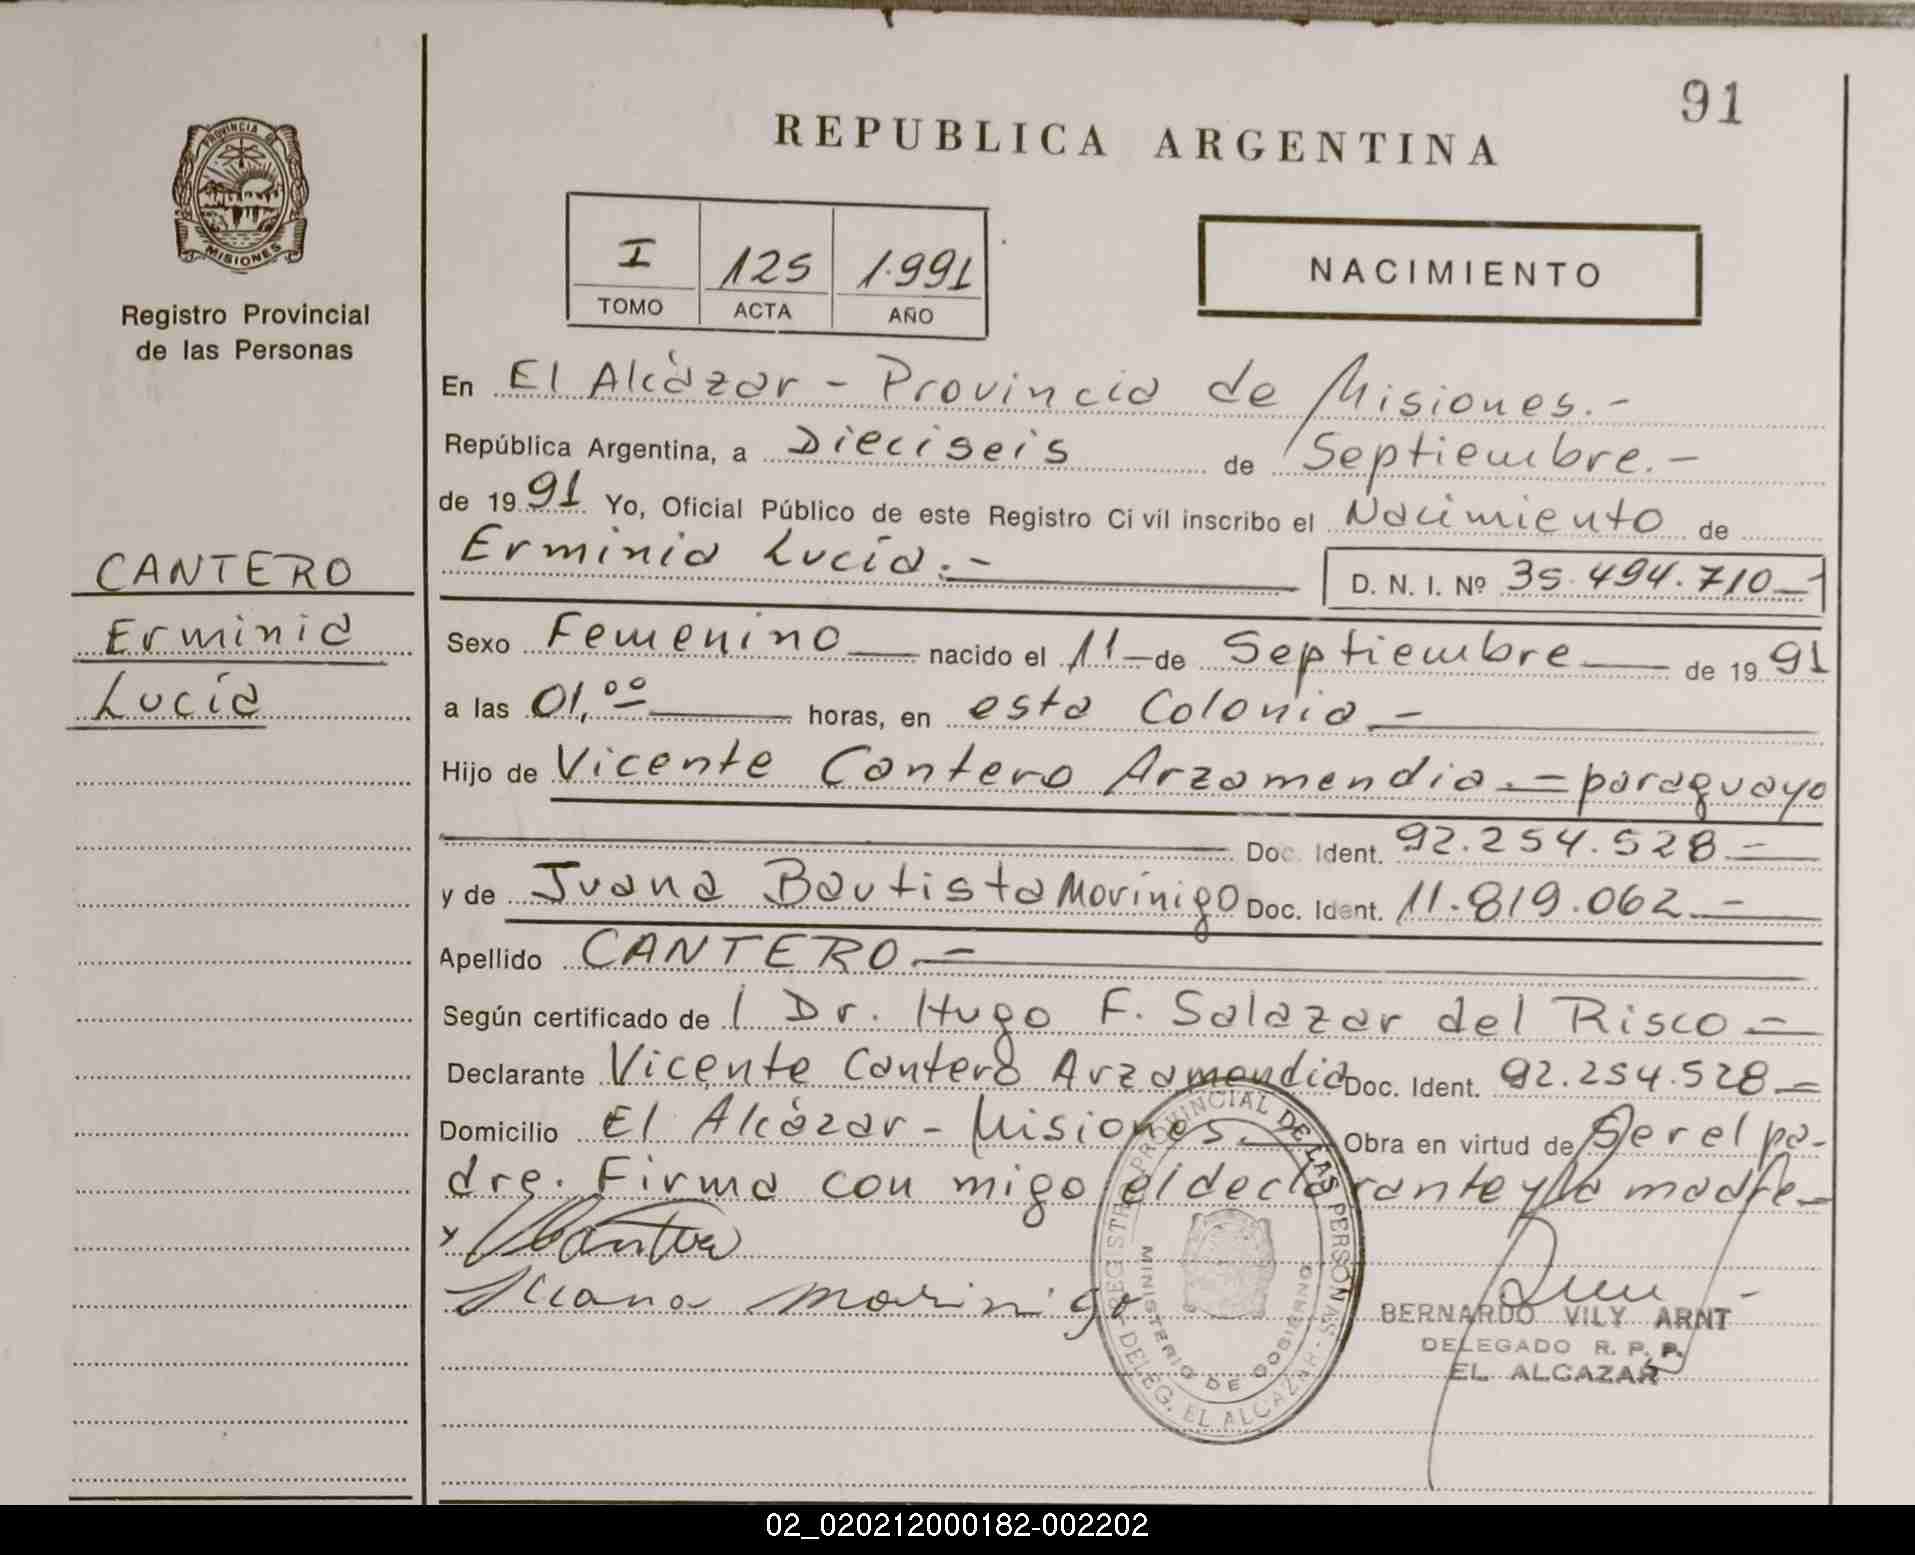 91
REPUBLICA ARGENTINA
PROVINCIA DE
MISIONES
Registro Provincial
de las Personas
I 125 1.991
TOMO ACTA AÑO
NACIMIENTO
En El Alcázar - Provincia de Misiones.-
República Argentina, a Dieciseis de Septiembre.-
de 1991 Yo, Oficial Público de este Registro Ci vil inscribo el Nacimiento de
Erminia Lucía.-
D. N. I. Nº 35.494.710-
CANTERO
Erminia
Lucía
Sexo Femenino nacido el 11 de Septiembre de 1991
a las 01,00 horas, en esta Colonia-
Hijo de Vicente Cantero Arzamendia.= paraguayo
Doc. Ident. 92.254.528-
y de Juana Bautista Morínigo Doc. Ident. 11.819.062-
Apellido CANTERO-
Según certificado de l Dr. Hugo F. Salazar del Risco-
Declarante Vicente Cantero Arzamendia Doc. Ident. 92.254.528-
Domicilio El Alcázar - Misiones. Obra en virtud de Ser el pa-
dre. Firma con migo el declarante y la madre-
x VCantero
Juana morinigo
REGISTRO PROVINCIAL DE LAS PERSONAS
MINISTERIO DE GOBIERNO
DELEG. EL ALCAZAR
BERNARDO VILY ARNT
DELEGADO R. P. P.
EL ALCAZAR
02_020212000182-002202